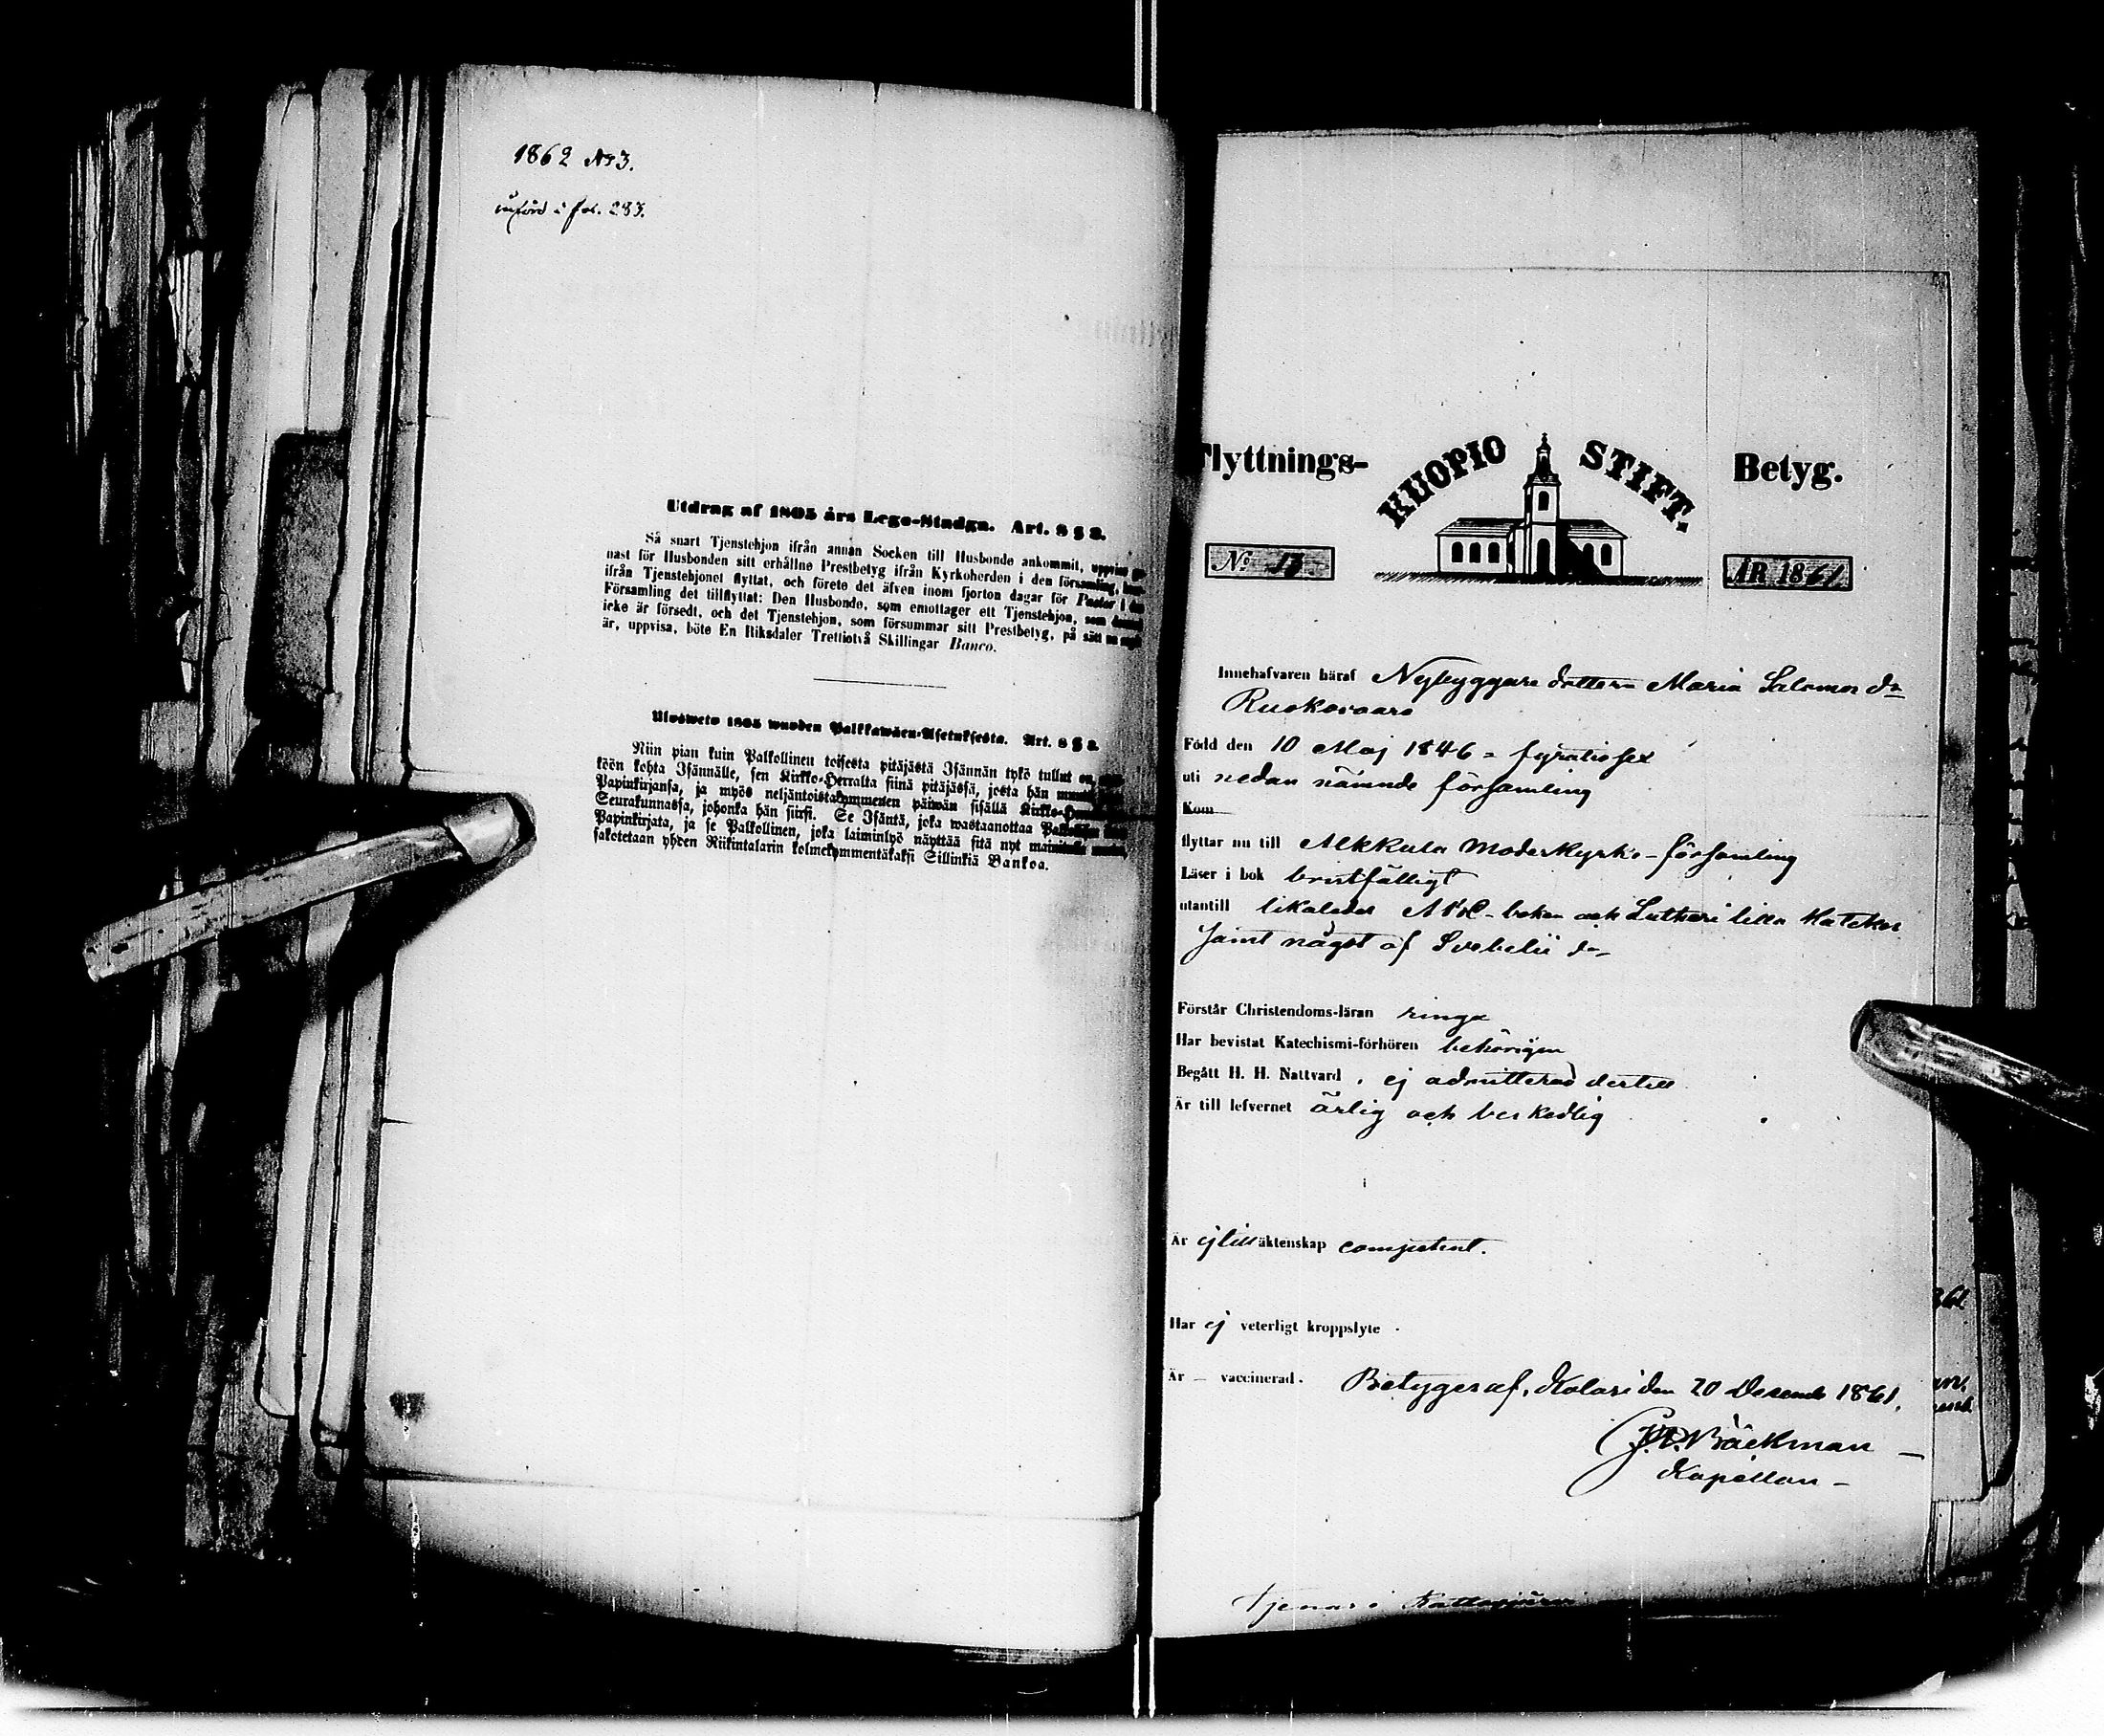 1862 No 3.
införd i fol. 283.
Utdrag af 1805 års Lego-Stadga. Art. 8 § 2.
Så snart Tjenstehjon ifrån annan Socken till Husbonde ankommit, uppvise ge-
nast för Husbonden sitt erhållne Prestbetyg ifrån Kyrkoherden i den församling,
ifrån Tjenstehjonet flyttat, och förete det äfven inom fjorton dagar för Pastor i den
Församling det tillflyttat: Den Husbonde, som emottager ett Tjenstehjon, som
icke är försedt, och det Tjenstehjon, som försummar sitt Prestbetyg, på sätt nu
är, uppvisa, böte En Riksdaler Trettiotvå Skillingar Banco.
Ulosweto 1805 wuoden Palkkawäen-Asetuksesta. Art. 8 § 2.
Niin pian kuin Palkollinen toisesta pitäjästä Isännän tykö tullut on,
köön kohta Isännälle, sen Kirkko-Herralta siinä pitäjässä, josta hän
Papinkirjansa, ja myös neljäntoistakymmenen päiwän sisällä
Seurakunnassa, johonka hän siirsi. Se Isäntä, joka wastaanottaa
Papinkirjata, ja se Palkollinen, joka laiminlyö näyttää sitä nyt
sakotetaan yhden Riikintalarin kolmekymmentäkaksi Sillinkiä Bankoa.
Flyttnings- KUOPIO STIFT. Betyg.
No 13. ÅR 1861.
Innehafvaren häraf Nybyggare dottern Maria Salomos dr
Ruokovaara
Född den 10 Maj 1846 = fyratiosex
uti nedan nämnde församling
Kom
flyttar nu till Alkkula Moderkyrko-församling
Läser i bok bristfälligt
utantill likaledes ABC-boken och Lutheri lilla Kateches
jämt något af Svebelii do
Förstår Christendoms-läran ringa
Har bevistat Katechismi-förhören behörigen
Begått H. H. Nattvard, ej admitterad dertill
Är till lefvernet ärlig och beskedlig
Är ej till äktenskap competent.
Har ej veterligt kroppslyte.
Är — vaccinerad. Betygas af, Kolari den 20 Decemb 1861.
Bäckman —
Kapellan —
Tjenar i